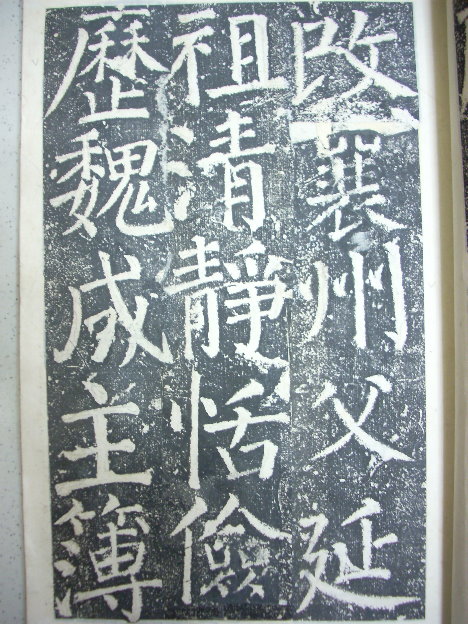 改襄州父延
祖清靜恬儉
歷魏咸主簿